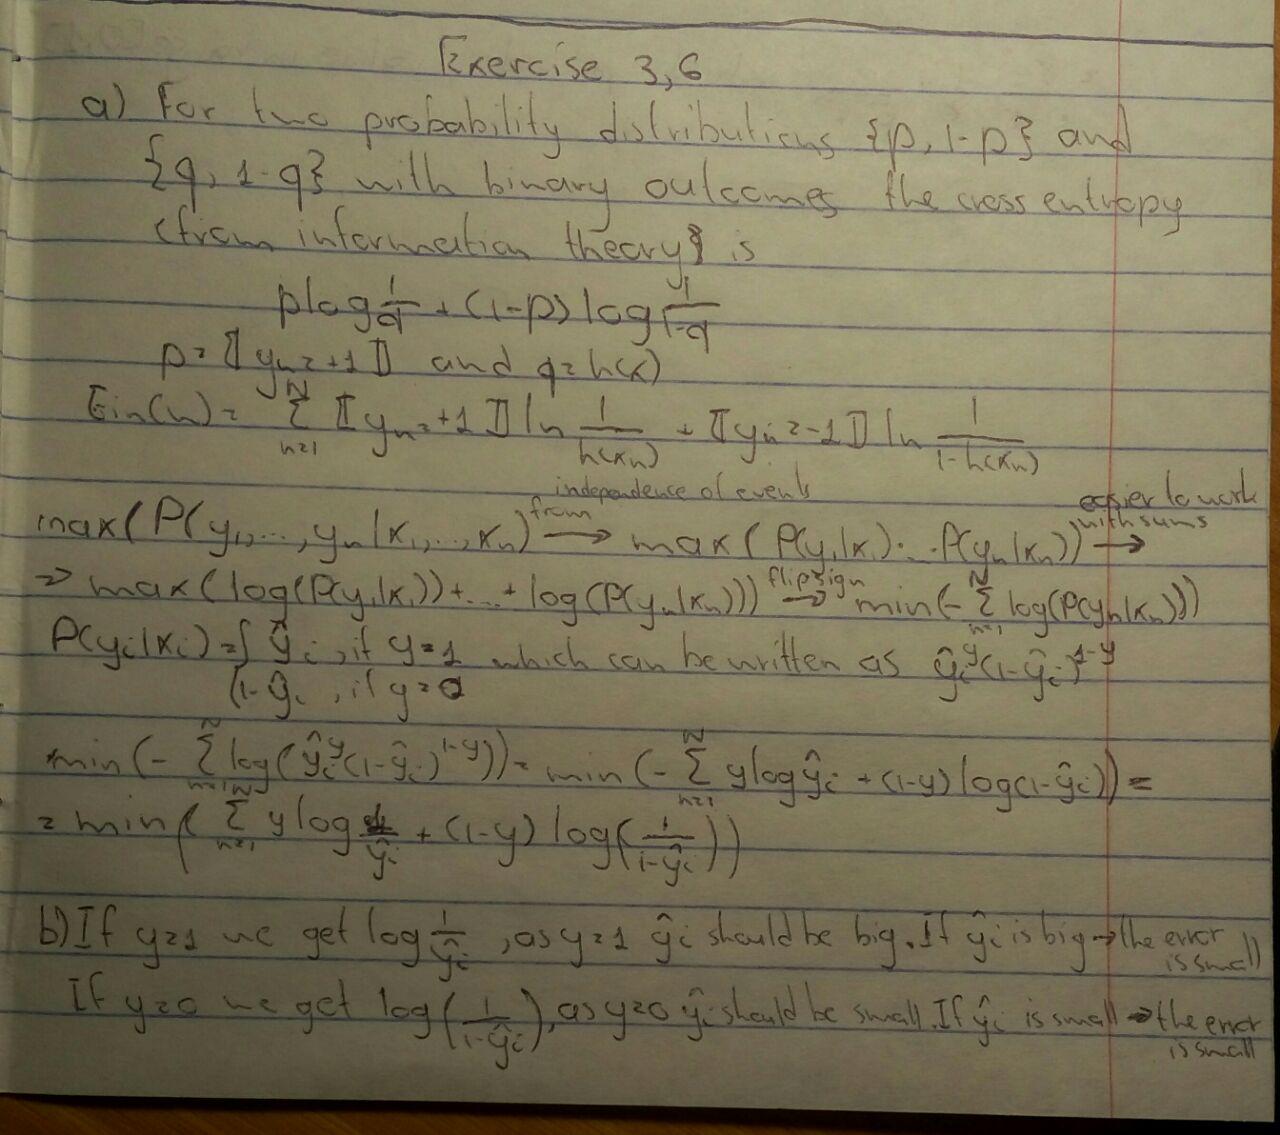 Exercise 3,6
a) For two probability distributions {p, 1-p} and
{q, 1-q} with binary outcomes the cross entropy
(from information theory) is
p log 1/q + (1-p) log 1/(1-q)
p = ⟦yn = +1⟧ and q = h(x)
Ein(h) = Σ_{n=1}^{N} ⟦yn = +1⟧ ln 1/h(xn) + ⟦yn = -1⟧ ln 1/(1-h(xn))
independence of events easier to work
max(P(y1,...,yn|x1,...,xn) from → max(P(y1|x1)...P(yn|xn)) with sums →
→ max(log(P(y1|x1))+...+log(P(yn|xn))) flip sign → min(-Σ_{n=1}^{N} log(P(yn|xn)))
P(yi|xi) = { ŷi, if y=1 which can be written as ŷi^y(1-ŷi)^{1-y}
1-ŷi, if y=0
min(-Σ_{n=1}^{N} log(ŷi^y(1-ŷi)^{1-y})) = min(-Σ_{n=1}^{N} y log ŷi + (1-y) log(1-ŷi)) =
= min(Σ_{n=1}^{N} y log 1/ŷi + (1-y) log(1/(1-ŷi)))
b) If y=1 we get log 1/ŷi, as y=1 ŷi should be big. If ŷi is big → the error
is small
If y=0 we get log(1/(1-ŷi)), as y=0 ŷi should be small. If ŷi is small → the error
is small